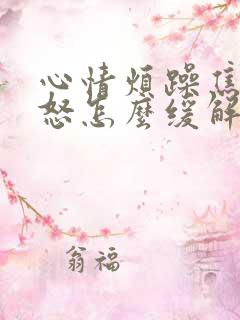 心情煩躁焦
怒怎麼緩解
翁福